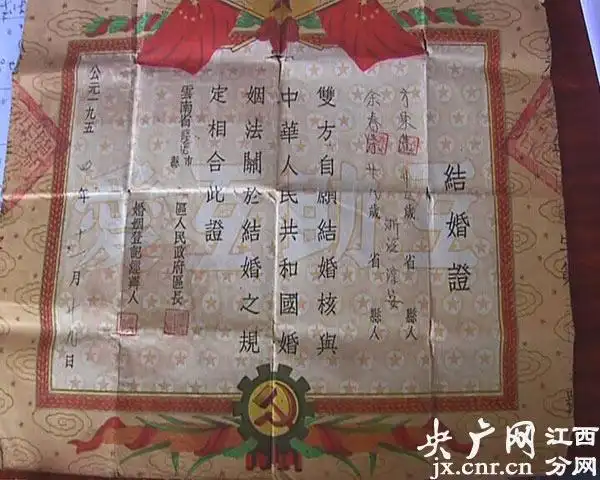 結婚證
方東 歲 省 縣人
余春 廿八歲 浙江 省 淳安 縣人
雙方自願結婚核與
中華人民共和國婚
姻法關於結婚之規
定相合此證
雲南省 市縣 區人民政府區長
婚姻登記經辦人
公元一九五四年十 月廿九日
央广网 江西
jx.cnr.cn 分网